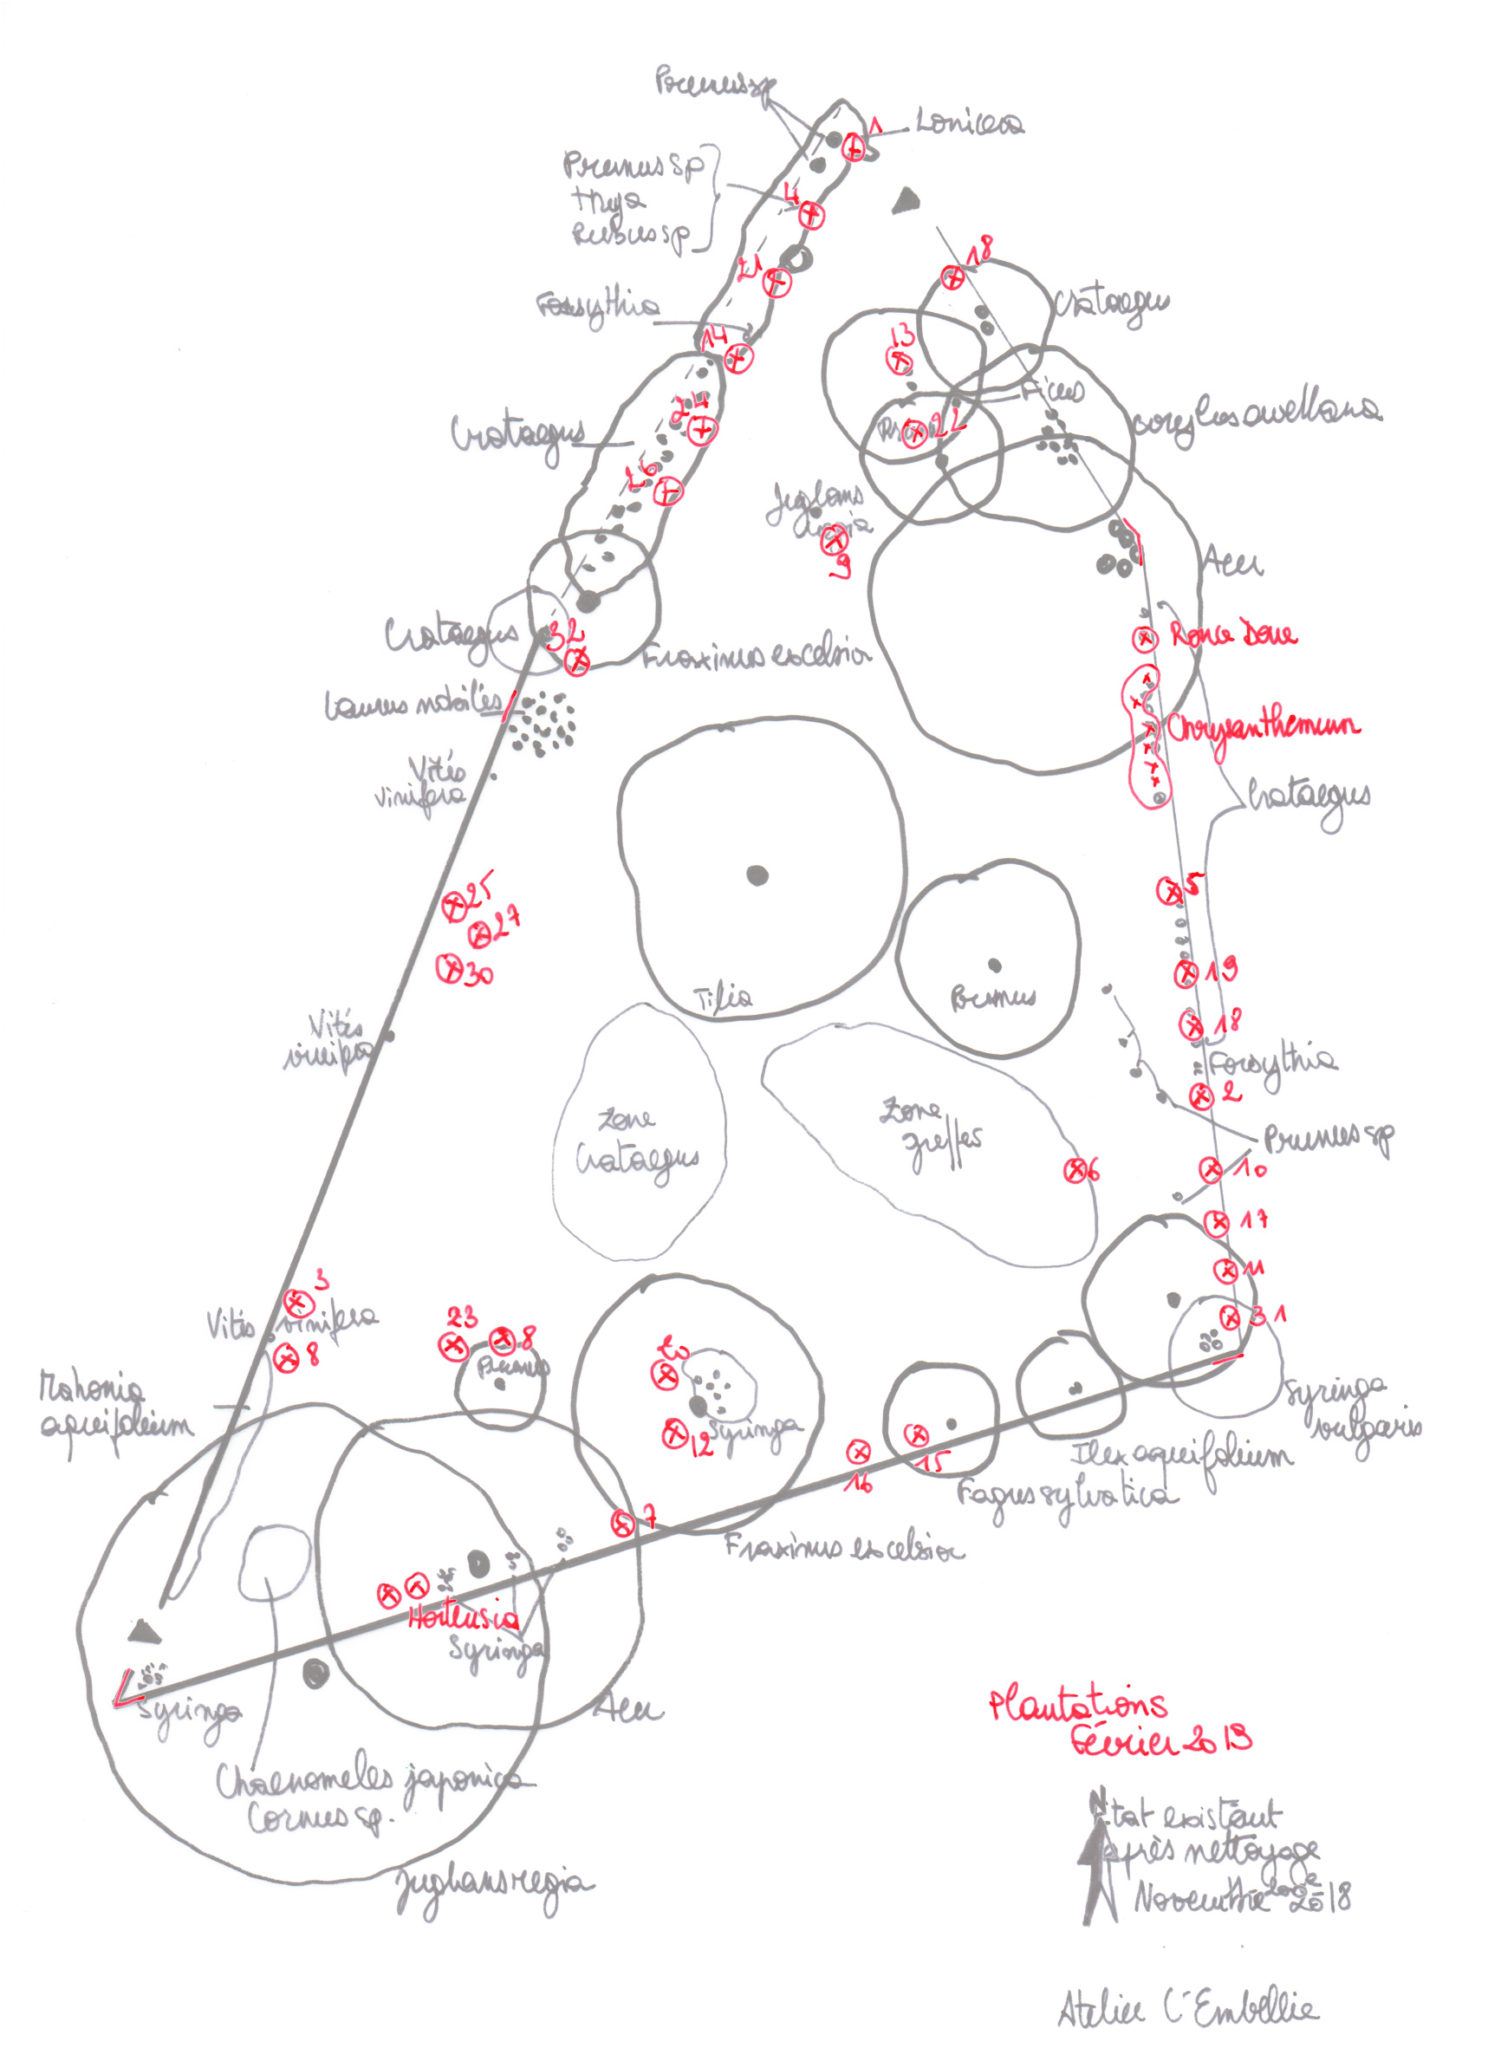 Prunus sp
1
Lonicera
Prunus sp
thuya
Rubus sp
4
21
Forsythia
14
18
Crataegus
13
Ficus
22
corylus avellana
Crataegus
24
26
Juglans
regia
9
Acer
Crataegus
32
Fraxinus excelsior
Ronce Dorée
Laurus nobilis
Chrysanthemum
Vitis
vinifera
Crataegus
25
27
30
5
19
Tilia
Prunus
18
Vitis
vinifera
Forsythia
2
Zone
Crataegus
Zone
greffes
Prunus sp
6
10
17
11
31
3
Vitis vinifera
8
23
8
Prunus
20
Syringa
12
Mahonia
aquifolium
Syringa
vulgaris
Ilex aquifolium
15
16
Fagus sylvatica
7
Fraxinus excelsior
Hortensia
Syringa
Syringa
Acer
Chaenomeles japonica
Cornus sp.
Juglans regia
Plantations
Février 2019
N
Etat existant
après nettoyage
Novembre 2018
Atelier L'Embellie